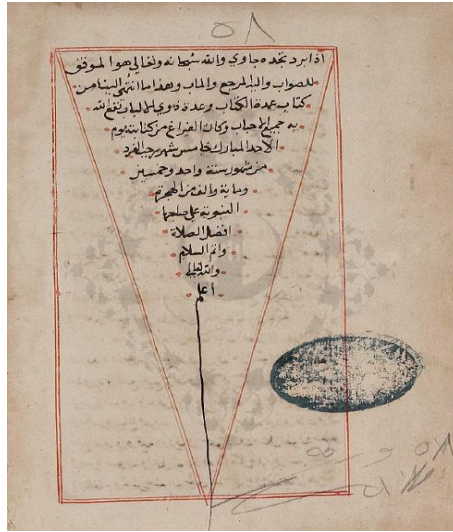 ٥٨
اذا برد تجده جاوي والله سبحانه وتعالى هوا الموفق
للصواب واليه المرجع والماب وهذا ما انتهى الينا من
كتاب عمدة الكتاب وعدة ذوي الالباب نفع الله
به جميع الاحباب وكان الفراغ من كتابته يوم
الاحد المبارك خامس شهر رجب الفرد
من شهور سنة واحد وخمسين
وماية والف من الهجرة
النبوية على صاحبها
افضل الصلاة
واتم السلام
والله تعالى
أعلم
٥٨